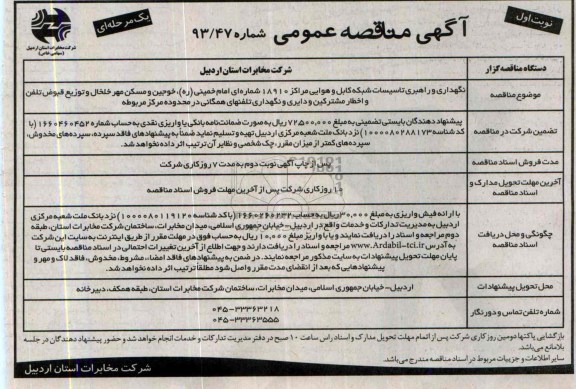 نوبت اول
آگهی مناقصه عمومی شماره ۹۳/۴۷
یک مرحله‌ای
شرکت مخابرات استان اردبیل
(سهامی خاص)
دستگاه مناقصه گزار
شرکت مخابرات استان اردبیل
موضوع مناقصه
نگهداری و راهبری تاسیسات شبکه کابل و هوایی مراکز ۱۸۹۱۰ شماره‌ای امام خمینی (ره)، خوجین و مسکن مهر خلخال و توزیع قبوض تلفن
و اخطار مشترکین و دایری و نگهداری تلفنهای همگانی در محدوده مرکز مربوطه
تضمین شرکت در مناقصه
پیشنهاد دهندگان بایستی تضمینی به مبلغ ۷۲،۵۰۰،۰۰۰ ریال به صورت ضمانت نامه بانکی یا واریزی نقدی به حساب شماره ۱۶۶۰۴۶۰۴۵۲ (با
کد شناسه ۱۰۰۰۰۸۰۲۸۸۱۷۳) نزد بانک ملت شعبه مرکزی اردبیل تهیه و تسلیم نماید ضمنا به پیشنهادهای فاقد سپرده، سپرده‌های مخدوش،
سپرده‌های کمتر از میزان مقرر، چک شخصی و نظایر آن ترتیب اثر داده نخواهد شد.
مدت فروش اسناد مناقصه
پس از چاپ آگهی نوبت دوم به مدت ۷ روز کاری شرکت
آخرین مهلت تحویل مدارک و
اسناد مناقصه
۱۰ روز کاری شرکت پس از آخرین مهلت فروش اسناد مناقصه
چگونگی و محل دریافت
اسناد مناقصه
با ارائه فیش واریزی به مبلغ ۳۰،۰۰۰ ریال به حساب ۱۶۶۰۲۶۰۲۳۲ (با کد شناسه ۱۰۰۰۰۸۰۱۱۹۱۲۰) نزد بانک ملت شعبه مرکزی
اردبیل به مدیریت تدارکات و خدمات واقع در اردبیل - خیابان جمهوری اسلامی، میدان مخابرات، ساختمان شرکت مخابرات استان، طبقه
دوم مراجعه و اسناد را دریافت نمایند و یا با واریز مبلغ ۱۰،۰۰۰ ریال به حساب فوق در مهلت مقرر از طریق اینترنت به سایت این شرکت
به آدرس www.Ardabil-tci.ir مراجعه و اسناد را دریافت دارند و جهت اطلاع از آخرین تغییرات احتمالی در اسناد مناقصه بایستی تا
پایان مهلت تحویل پیشنهادات به سایت مذکور مراجعه نمایند. در ضمن به پیشنهادهای فاقد امضاء، مشروط، مخدوش، فاقد لاک و مهر و
پیشنهادهایی که بعد از انقضای مدت مقرر واصل شود مطلقا ترتیب اثر داده نخواهد شد.
محل تحویل پیشنهادات
اردبیل - خیابان جمهوری اسلامی، میدان مخابرات، ساختمان شرکت مخابرات استان، طبقه همکف، دبیرخانه
شماره تلفن تماس و دورنگار
۰۴۵-۳۳۳۶۳۲۱۸
۰۴۵-۳۳۳۶۳۵۵۵
بازگشایی پاکتها دومین روز کاری شرکت پس از اتمام مهلت تحویل مدارک و اسناد راس ساعت ۱۰ صبح در دفتر مدیریت تدارکات و خدمات انجام خواهد شد و حضور پیشنهاد دهندگان در جلسه
بلامانع می‌باشد.
سایر اطلاعات و جزییات مربوط در اسناد مناقصه مندرج می‌باشد.
شرکت مخابرات استان اردبیل